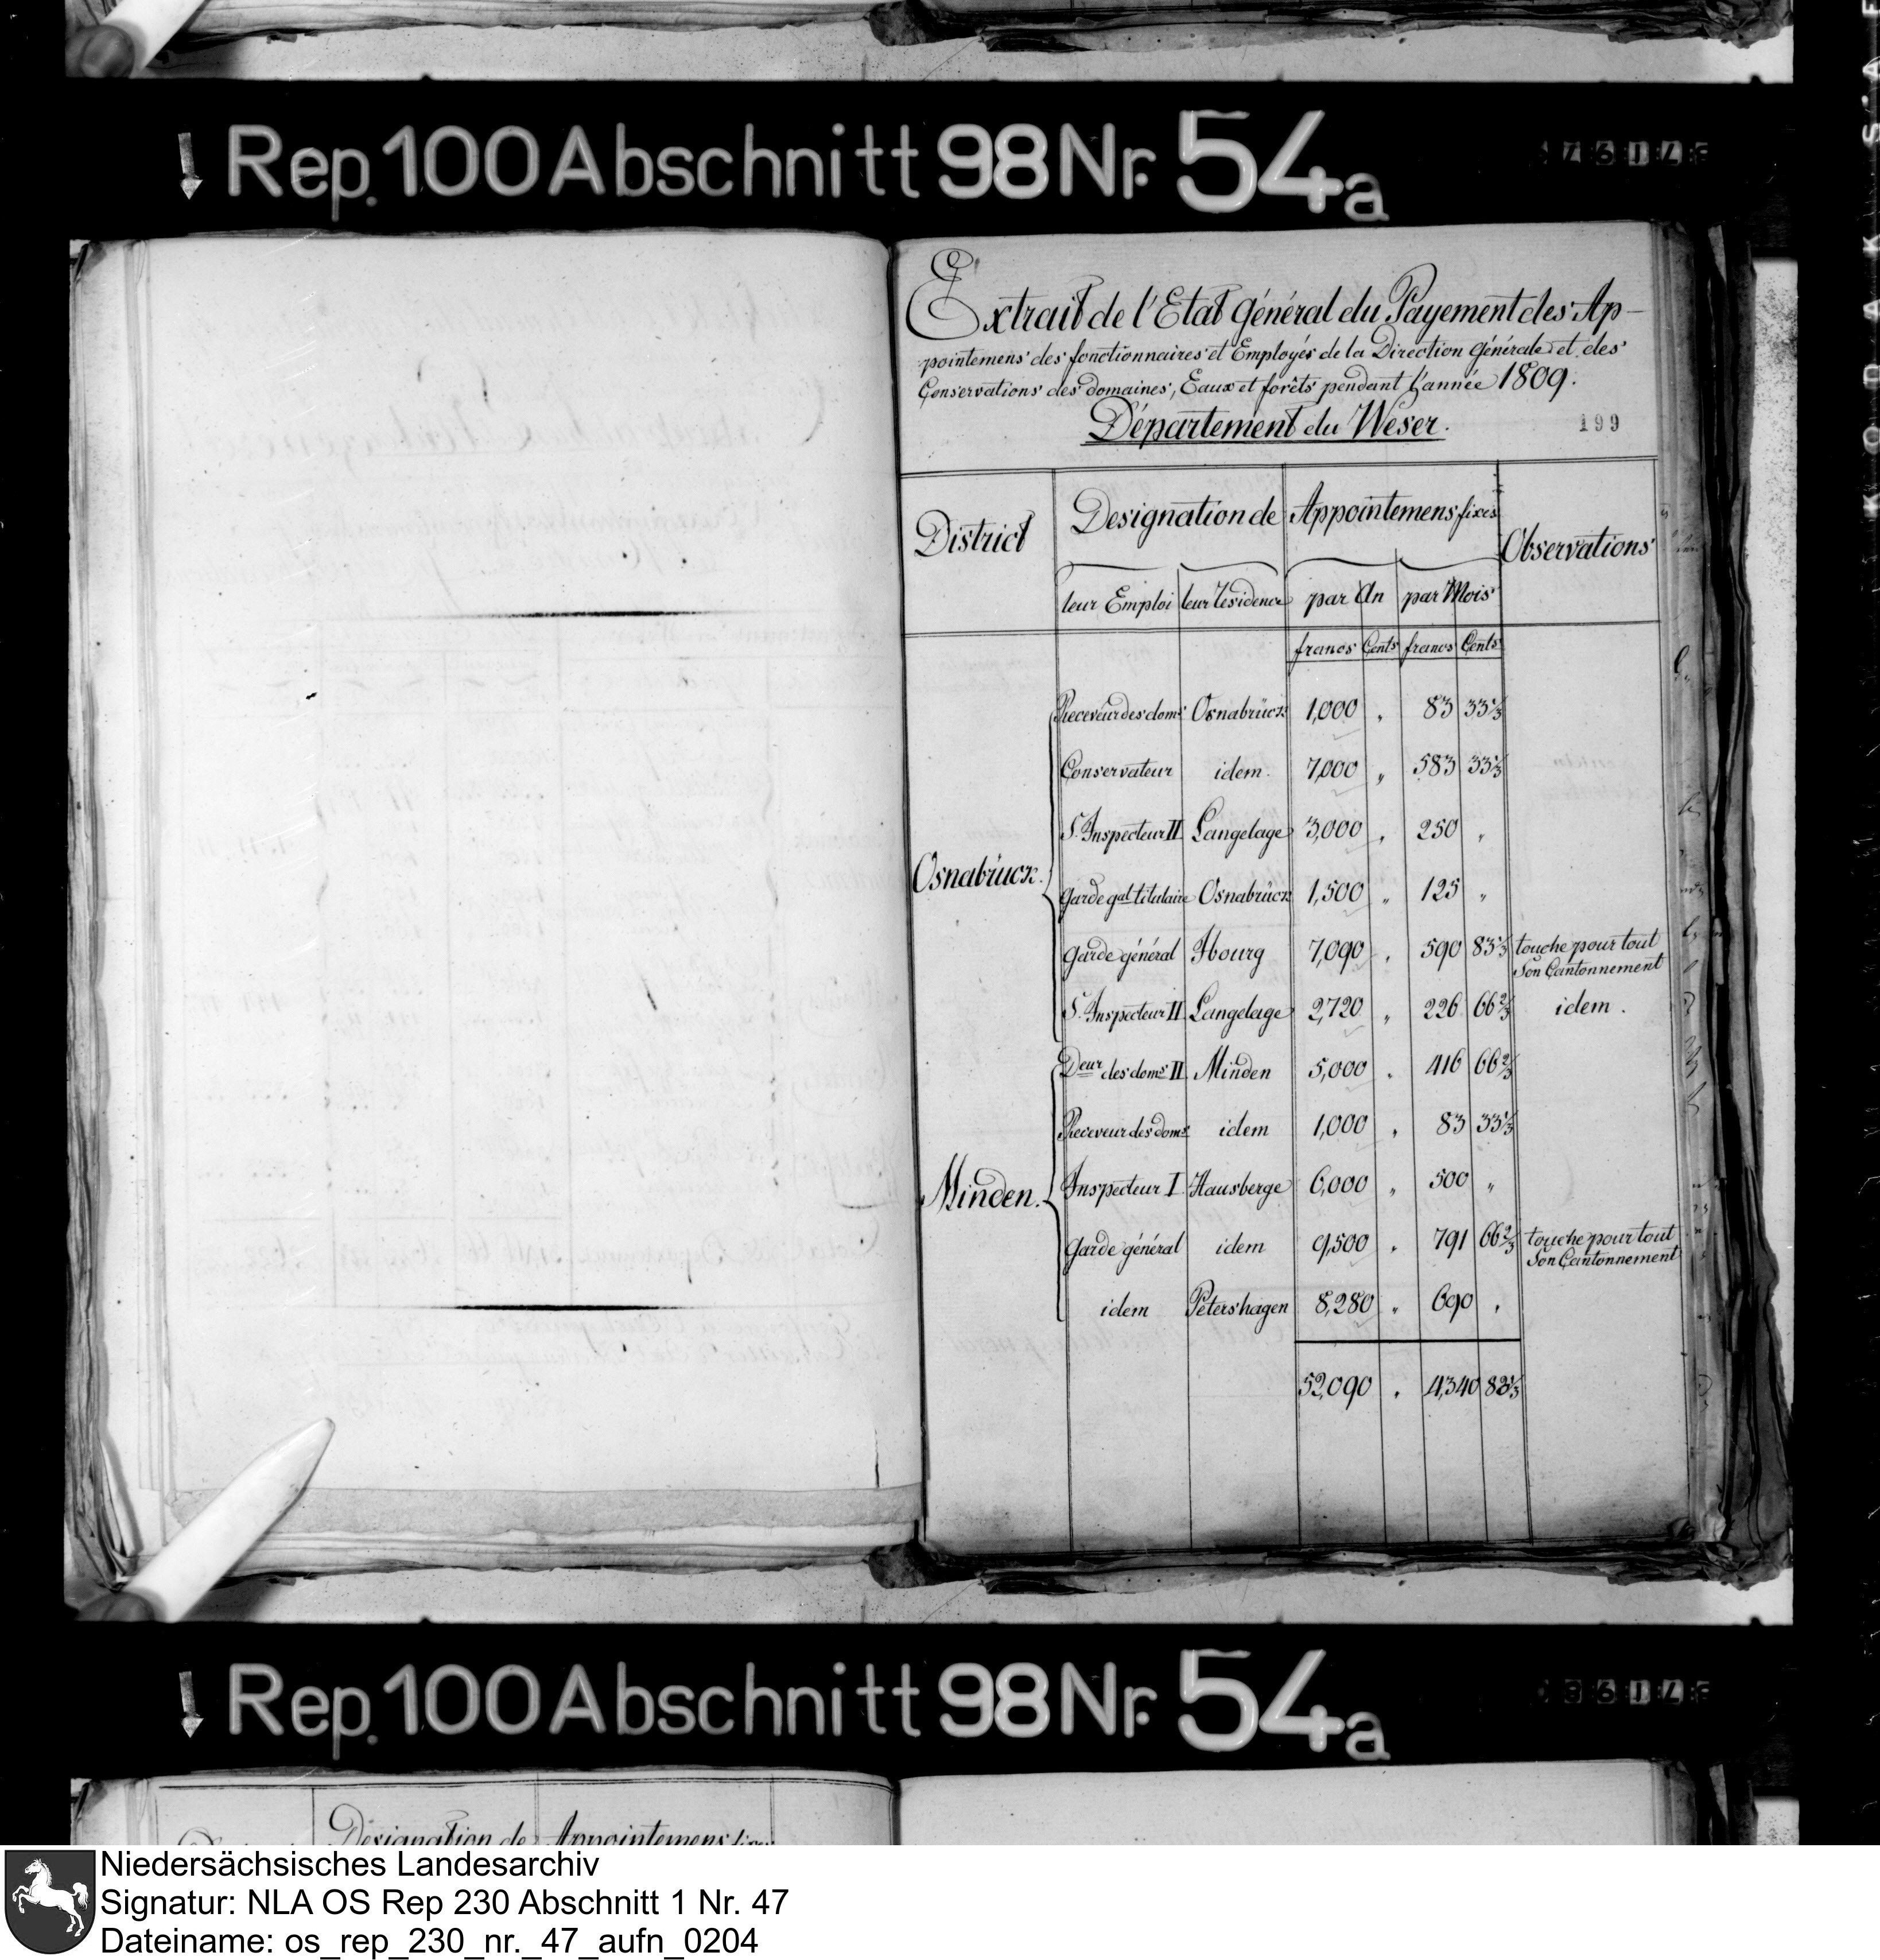 Rep. 100 Abschnitt 98 Nr. 54a
Extrait de l'Etat Général du Payement des Ap-
pointemens des fonctionnaires et Employés de la Direction Générale et des
Conservations des domaines, Eaux et forêts pendant l'année 1809.
Département du Weser.
199
District | Designation de | Appointemens fixes | Observations
leur Emploi | leur résidence | par An | par Mois
francs | Cents | francs | Cents
Osnabrück.
Receveur des doms | Osnabrück | 1,000 | „ | 83 | 33⅓
Conservateur | idem. | 7,000 | „ | 583 | 33⅓
S. Inspecteur II | Langelage | 3,000 | „ | 250 | „
Garde gal titulaire | Osnabrück | 1,500 | „ | 125 | „
Garde général | Ibourg | 7,090 | „ | 590 | 83⅓ | touche pour tout
Son Cantonnement
S. Inspecteur II | Langelage | 2,720 | „ | 226 | 66⅔ | idem.
Minden.
Deur des doms II. | Minden | 5,000 | „ | 416 | 66⅔
Receveur des doms | idem | 1,000 | „ | 83 | 33⅓
Inspecteur I | Hausberge | 6,000 | „ | 500 | „
Garde général | idem | 9,500 | „ | 791 | 66⅔ | touche pour tout
Son Cantonnement
idem | Petershagen | 8,280 | „ | 690 | „
52,090 | „ | 4,340 | 83⅓
Rep. 100 Abschnitt 98 Nr. 54a
Désignation de | Appointemens fixes
Niedersächsisches Landesarchiv
Signatur: NLA OS Rep 230 Abschnitt 1 Nr. 47
Dateiname: os_rep_230_nr._47_aufn_0204